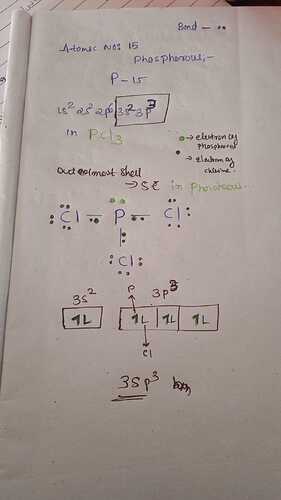 Bond - ••
Atomic No: 15
Phosphorous:-
P - 15
1s² 2s² 2p⁶ 3s² 3p³
in PCl3
• → electron of Phosphorous
• → Electron of chlorine.
Outermost Shell
→ 5e⁻ in Phosphorous
Cl P Cl
Cl
3s² P 3p³
1L 1L 1L 1L
Cl
3Sp³